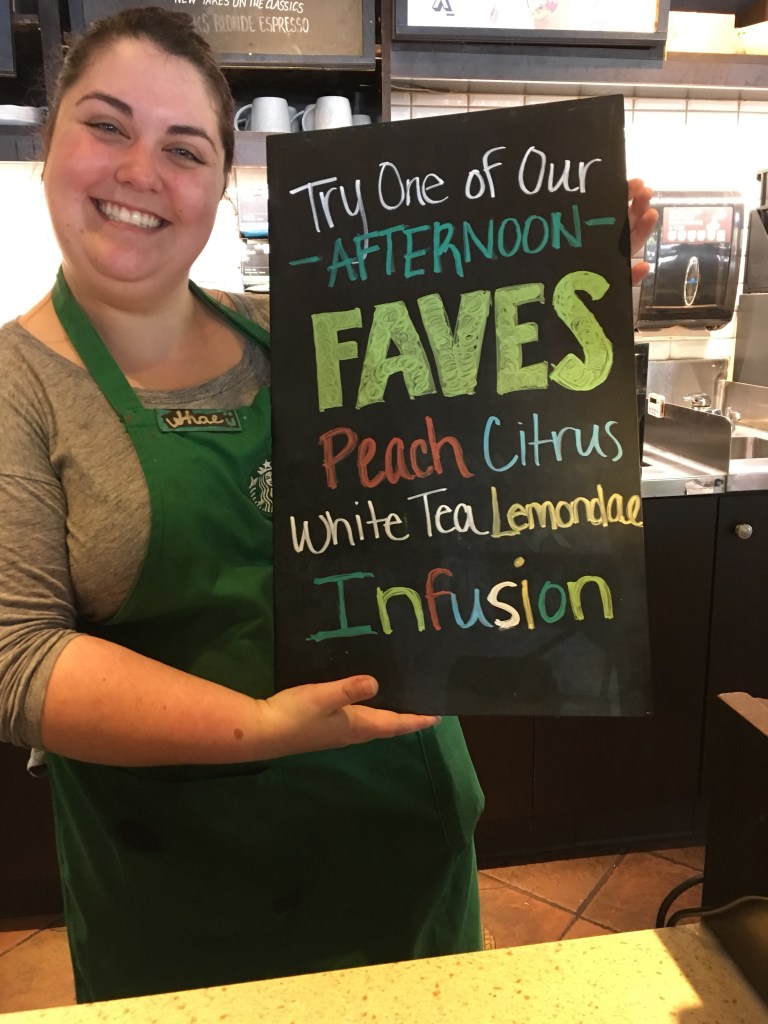 NEW TAKES ON THE CLASSICS
BLONDE ESPRESSO
Try One of Our
-AFTERNOON-
FAVES
Peach Citrus
White Tea Lemondae
Infusion